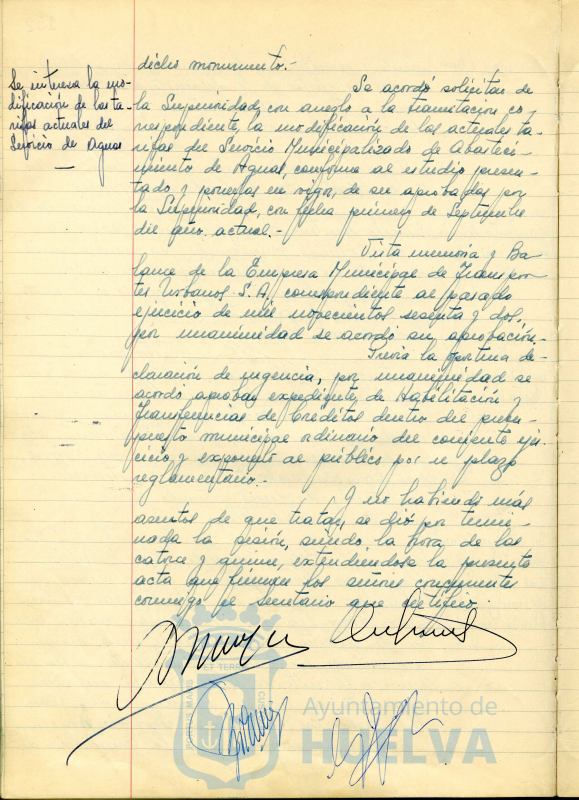 dicho monumento.-
Se interesa la mo-
dificación de las ta-
rifas actuales del
Servicio de Aguas
Se acordó solicitar de
la Superioridad, con arreglo a la tramitacion co-
rrespondiente, la modificación de las actuales ta-
rifas del Servicio Municipalizado de Abasteci-
miento de Aguas, conforme al estudio presen-
tado y ponerlas en vigor, de ser aprobadas por
la Superioridad, con fecha primero de Septiembre
del año actual.-
Vista memoria y Ba-
lance de la Empresa Municipal de Transpor-
tes Urbanos S.A. correspondiente al pasado
ejercicio de mil novecientos sesenta y dos,
por unanimidad se acordó su aprobación.
Previa la oportuna de-
claración de urgencia, por unanimidad se
acordó aprobar expediente de Habilitación y
Transferencias de Créditos dentro del presu-
puesto municipal ordinario del corriente ejer-
cicio y exponerlo al público por el plazo
reglamentario.-
Y no habiendo más
asuntos de que tratar, se dió por termi-
nada la sesión, siendo la hora de las
catorce y quince, extendiéndose la presente
acta que firman los señores concurrentes
conmigo el Secretario que certifico.
Ayuntamiento de
HUELVA